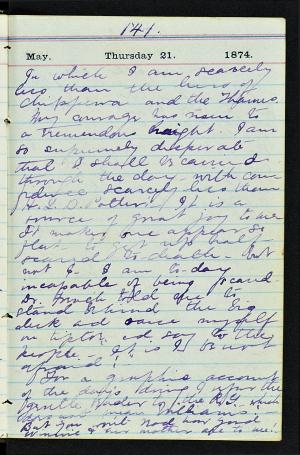 141.
May. Thursday 21. 1874.
In which I am scarcely
less than the hero of
Chippewa and the Thames.
My courage has risen to
a tremendous height. I am
so supremely desperate
that I shall be carried
through the day with com
scarcely less than
It is a
source of great joy to me
It makes one appear so
flat to get up half
scared to death. But
not I. I am to-day
incapable of being scared.
Dr. told me to
stand behind the big
desk and raise myself
on tiptoe and say to the
people - It is I be not
afraid!
For a graphic account
of the day's doings of
gentle reader
Williams.
But you will
mother are to me!